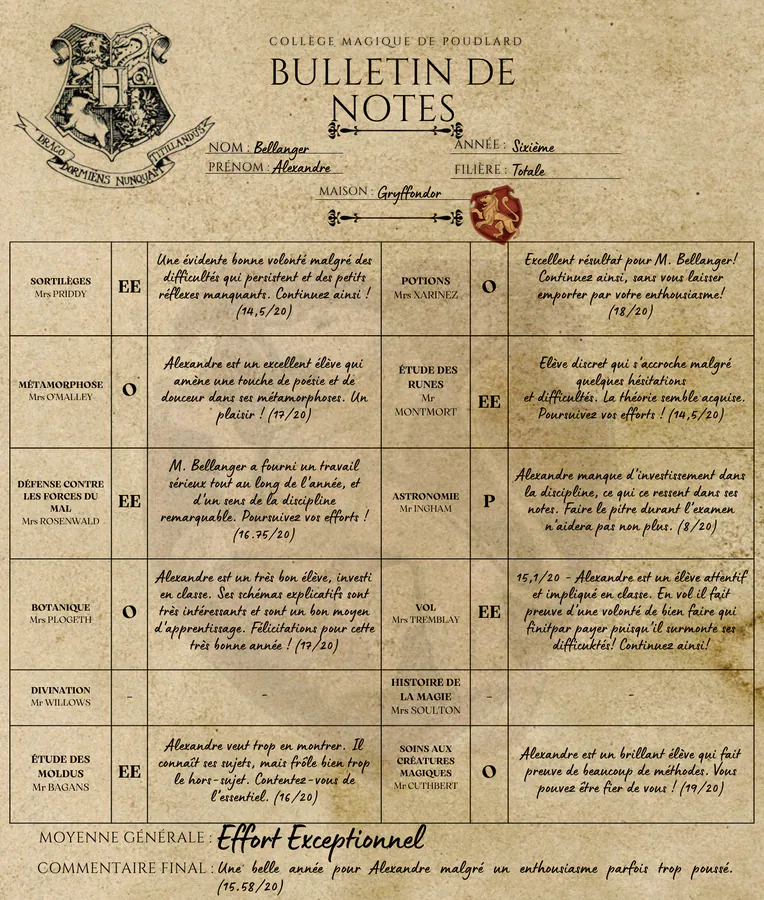 COLLÈGE MAGIQUE DE POUDLARD
BULLETIN DE
NOTES
DRACO DORMIENS NUNQUAM TITILLANDUS
H
NOM : Bellanger
ANNÉE : Sixième
PRÉNOM : Alexandre
FILIÈRE : Totale
MAISON : Gryffondor
SORTILÈGES
Mrs PRIDDY
EE
Une évidente bonne volonté malgré des
difficultés qui persistent et des petits
réflexes manquants. Continuez ainsi !
(14,5/20)
POTIONS
Mrs XARINEZ
O
Excellent résultat pour M. Bellanger!
Continuez ainsi, sans vous laisser
emporter par votre enthousiasme!
(18/20)
MÉTAMORPHOSE
Mrs O'MALLEY
O
Alexandre est un excellent élève qui
amène une touche de poésie et de
douceur dans ses métamorphoses. Un
plaisir ! (17/20)
ÉTUDE DES
RUNES
Mr
MONTMORT
EE
Elève discret qui s'accroche malgré
quelques hésitations
et difficultés. La théorie semble acquise.
Poursuivez vos efforts ! (14,5/20)
DÉFENSE CONTRE
LES FORCES DU
MAL
Mrs ROSENWALD
EE
M. Bellanger a fourni un travail
sérieux tout au long de l'année, et
d'un sens de la discipline
remarquable. Poursuivez vos efforts !
(16.75/20)
ASTRONOMIE
Mr INGHAM
P
Alexandre manque d'investissement dans
la discipline, ce qui ce ressent dans ses
notes. Faire le pitre durant l'examen
n'aidera pas non plus. (8/20)
BOTANIQUE
Mrs PLOGETH
O
Alexandre est un très bon élève, investi
en classe. Ses schémas explicatifs sont
très intéressants et sont un bon moyen
d'apprentissage. Félicitations pour cette
très bonne année ! (17/20)
VOL
Mrs TREMBLAY
EE
15,1/20 - Alexandre est un élève attentif
et impliqué en classe. En vol il fait
preuve d'une volonté de bien faire qui
finitpar payer puisqu'il surmonte ses
difficuktés! Continuez ainsi!
DIVINATION
Mr WILLOWS
-
-
HISTOIRE DE
LA MAGIE
Mrs SOULTON
-
-
ÉTUDE DES
MOLDUS
Mr BAGANS
EE
Alexandre veut trop en montrer. Il
connaît ses sujets, mais frôle bien trop
le hors-sujet. Contentez-vous de
l'essentiel. (16/20)
SOINS AUX
CRÉATURES
MAGIQUES
Mr CUTHBERT
O
Alexandre est un brillant élève qui fait
preuve de beaucoup de méthodes. Vous
pouvez être fier de vous ! (19/20)
MOYENNE GÉNÉRALE : Effort Exceptionnel
COMMENTAIRE FINAL : Une belle année pour Alexandre malgré un enthousiasme parfois trop poussé.
(15.58/20)